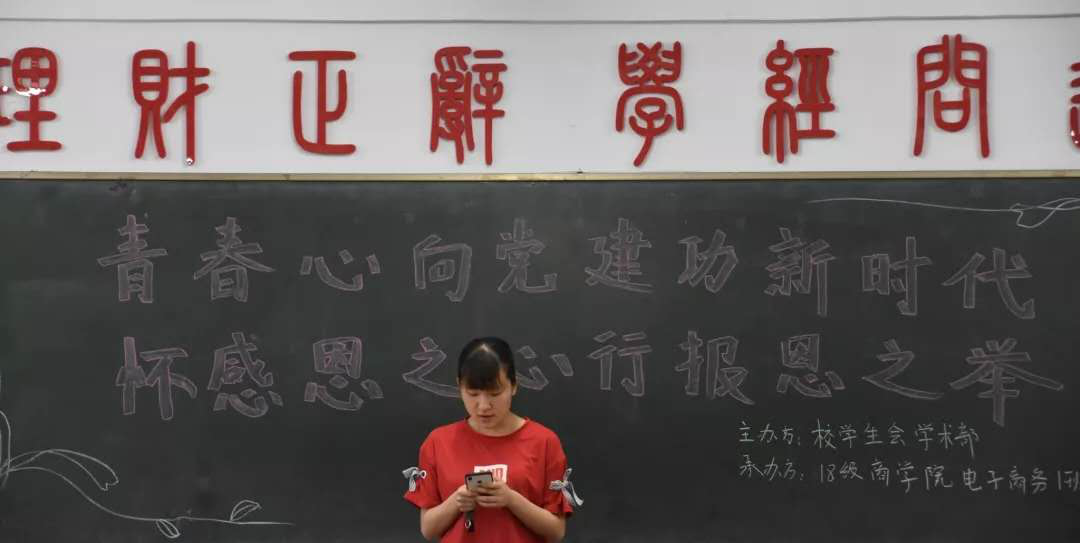 理財正辭學經問
青春心向党建功新时代
怀感恩之心行报恩之举
主办方：校学生会学术部
承办方：18级商学院电子商务1班